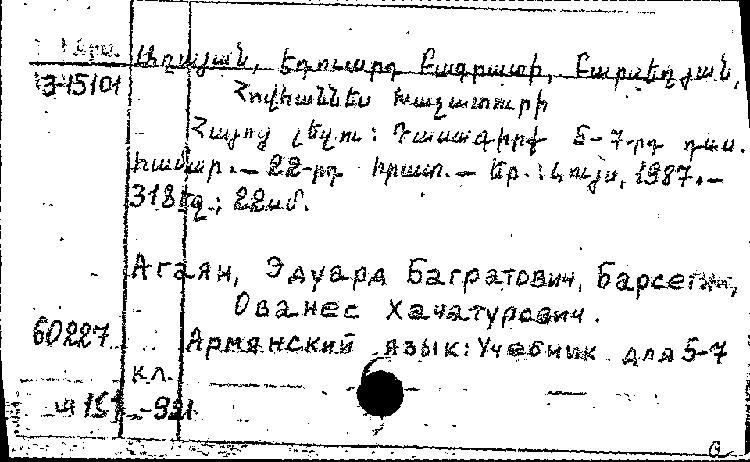 Աղայան, Էդուարդ Բագրատի, Բարսեղյան,
13-15101
Հովհաննես Խաչատուրի
Հայոց լեզու : Դասագիրք 5-7-րդ դաս.
համար. — 22-րդ հրատ. — Եր. : Լույս, 1987. —
318 էջ ; 22 սմ.
Агаян, Эдуард Багратович, Барсегян,
Ованес Хачатурович.
60227
Армянский язык: Учебник для 5-7
кл.